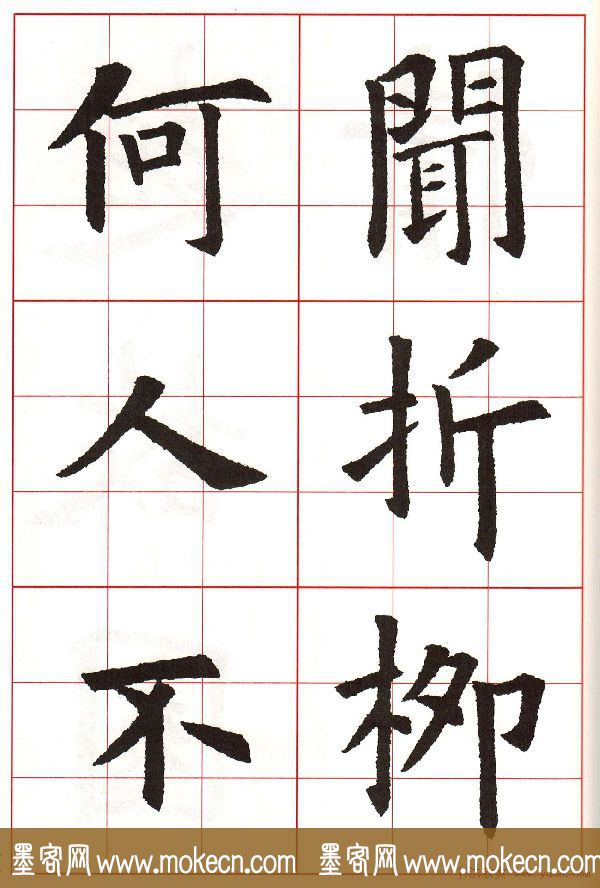 聞折柳
何人不
墨客网 www.mokecn.com 墨客网 www.mokecn.com